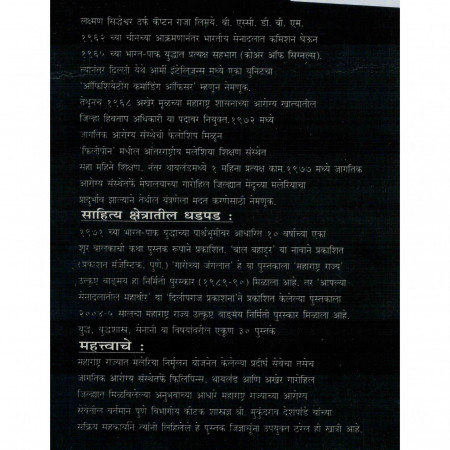 लक्ष्मण सिद्धेश्वर उर्फ कॅप्टन राजा लिमये. श्री. एस्सी. डी. बी. एम.
१९६२ च्या चीनच्या आक्रमणानंतर भारतीय सेनादलात कमिशन घेऊन
१९६५ च्या भारत-पाक युद्धात प्रत्यक्ष सहभाग (कोअर ऑफ सिग्नल्स).
त्यानंतर दिल्ली येथे आर्मी इंटेलिजन्स मध्ये एका युनिटचा
'ऑफिशिएटींग कमांडिंग ऑफिसर' म्हणून नेमणूक.
तेथूनच १९६८ अखेर मूळच्या महाराष्ट्र शासनाच्या आरोग्य खात्यातील
जिल्हा हिवताप अधिकारी या पदावर नियुक्त.१९७२ मध्ये
जागतिक आरोग्य संस्थेची फेलोशिप मिळून
'फिलीपीन' मधील आंतरराष्ट्रीय मलेरिया शिक्षण संस्थेत
सहा महिने शिक्षण, नंतर थायलंडमध्ये १ महिना प्रत्यक्ष काम.१९७७ मध्ये जागतिक
आरोग्य संस्थेतर्फे मेघालयाच्या गारोहिल जिल्ह्यात मेंदूच्या मलेरियाचा
प्रादुर्भाव झाल्याने तेथील यंत्रणेला मदत करणेसाठी नेमणूक.
साहित्य क्षेत्रातील धडपड :
१९७१ च्या भारत-पाक युद्धाच्या पार्श्वभूमीवर आधारित १० वर्षाच्या एका
शूर बालकाची कथा पुस्तक रूपाने प्रकाशित. 'बाल बहाद्दूर' या नावाने प्रकाशित
(प्रकाशन मॅजेस्टिक, पुणे.) 'गारोंच्या जंगलात' हे या पुस्तकाला 'महाराष्ट्र राज्य'
उत्कृष्ट वाङ्मय हा निर्मिती पुरस्कार (१९८९-९०) मिळाला आहे. तर 'आपल्या
सेनादलातील महावीर' या 'दिलीपराज प्रकाशना'ने प्रकाशित केलेल्या पुस्तकाला
२००४-५ सालचा महाराष्ट्र राज्य उत्कृष्ट वाङ्मय निर्मिती पुरस्कार मिळाला आहे.
युद्ध, युद्धशास्त्र, सेनानी या विषयांवरील एकूण ३० पुस्तके
महत्त्वाचे :
महाराष्ट्र राज्यात मलेरिया निर्मूलन योजनेत केलेल्या प्रदीर्घ सेवेचा तसेच
जागतिक आरोग्य संस्थेतर्फे फिलिपिन्स, थायलंड आणि अखेर गारोहिल
जिल्ह्यात मिळविलेल्या अनुभवाच्या आधारे महाराष्ट्र राज्याच्या आरोग्य
सेवेतील वर्तमान पुणे विभागीय कीटक शास्त्रज्ञ श्री. मुकुंदराव देशपांडे यांच्या
सक्रिय सहकार्याने त्यांनी लिहिलेले हे पुस्तक जिज्ञासूंना उपयुक्त ठरेल ही खात्री आहे.